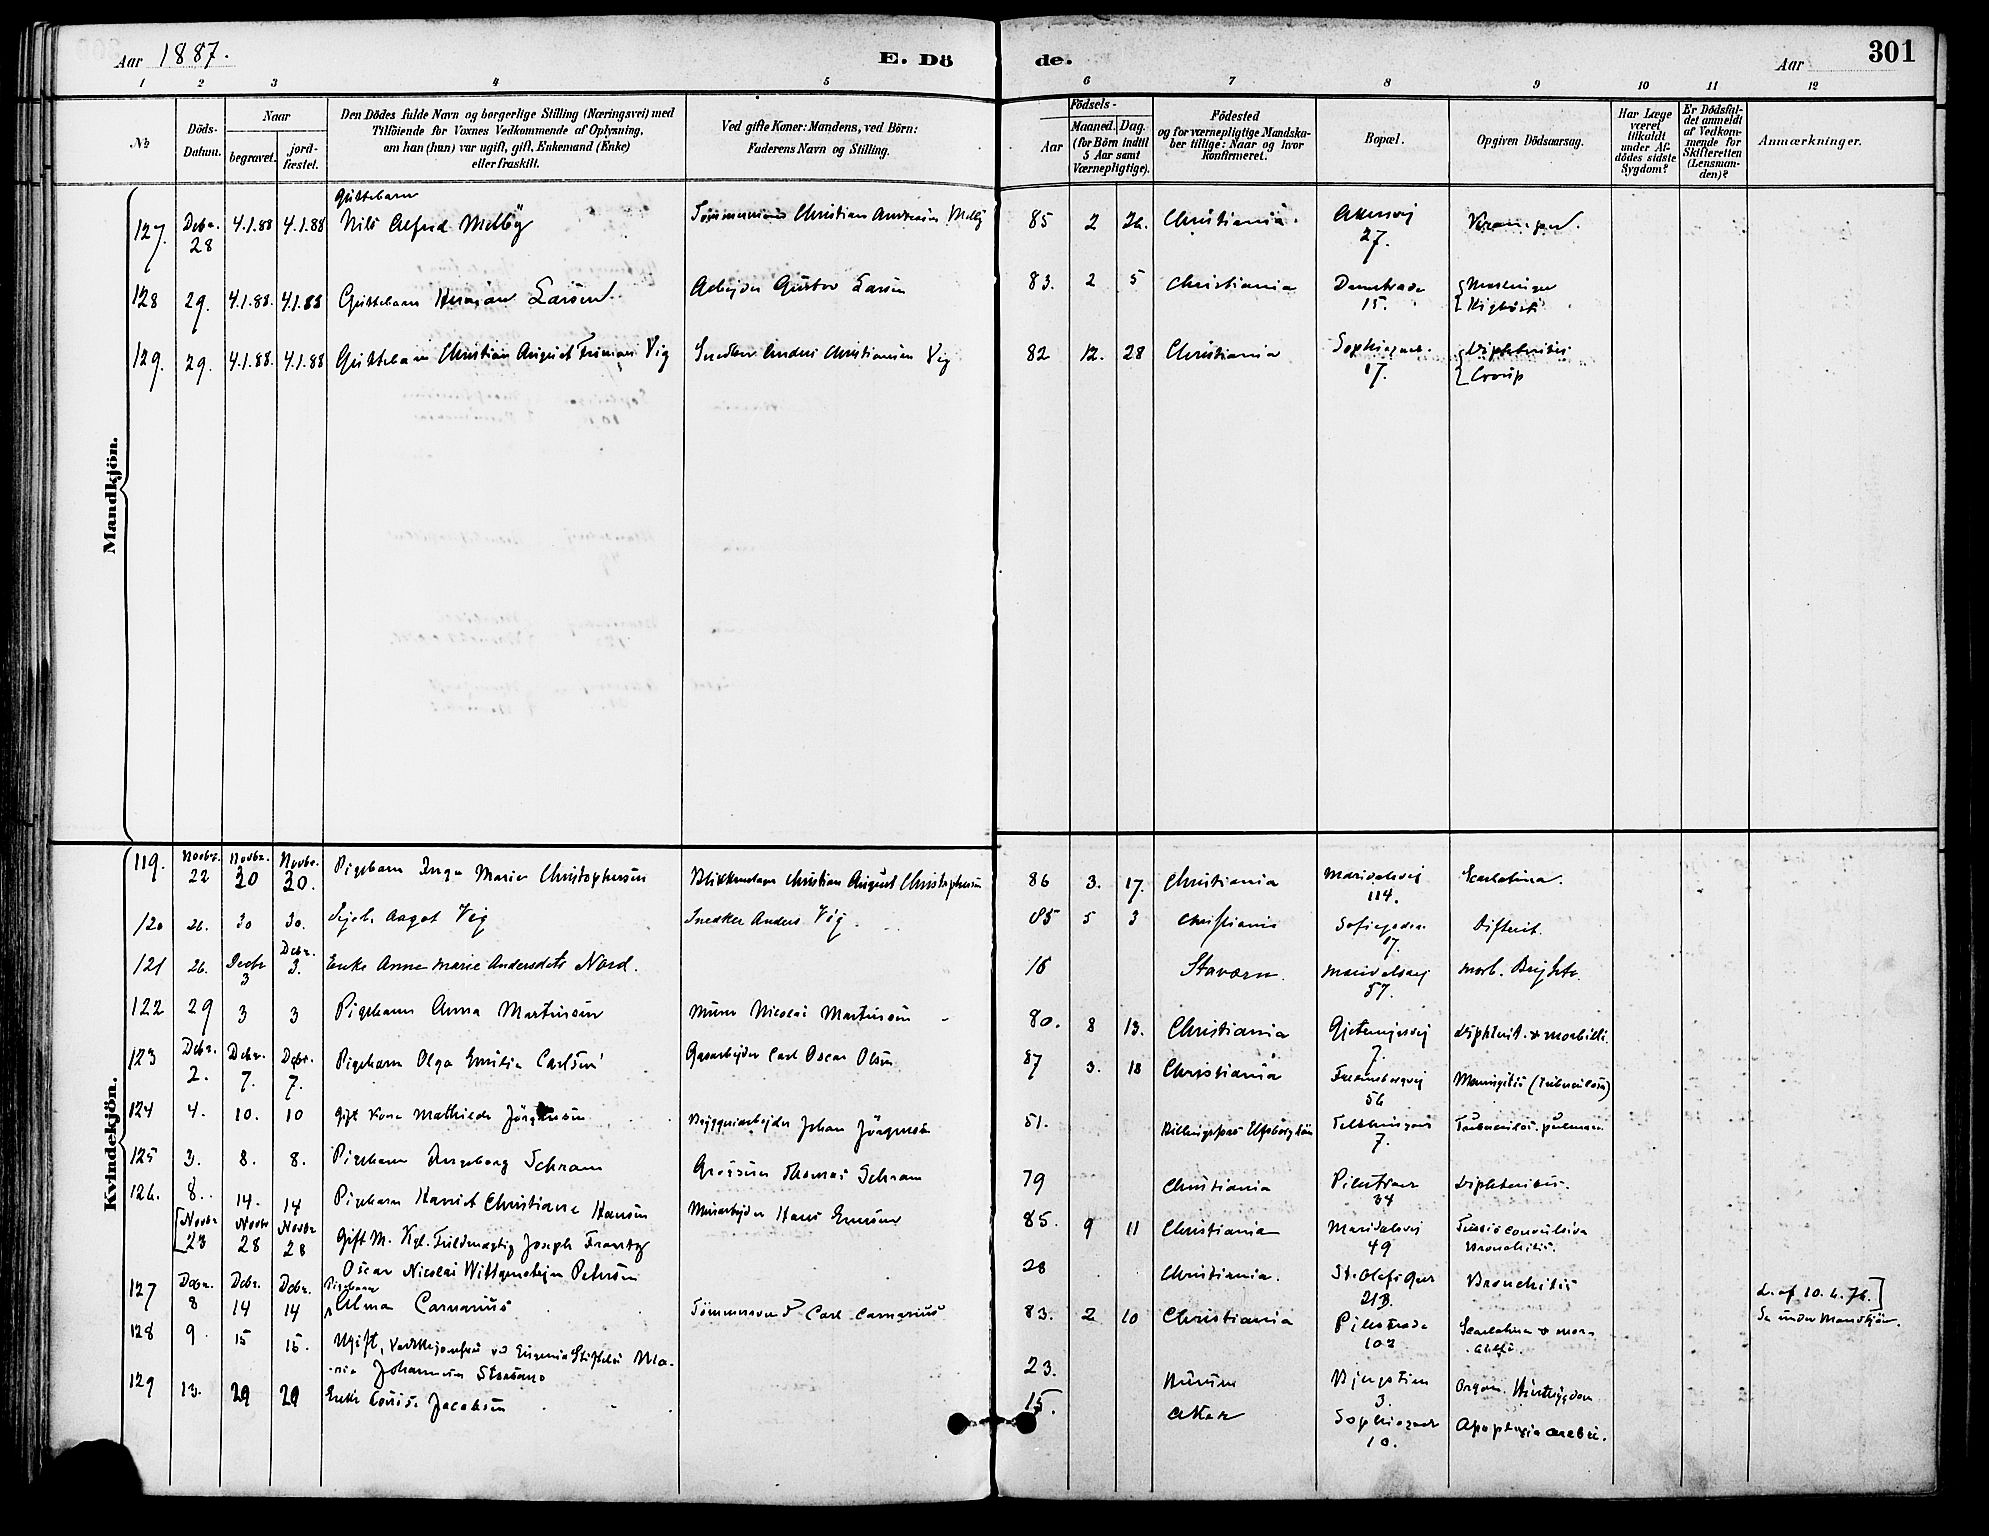 Aar 1887.
E. Dö
de.
Aar
301
1 2 3 4 5 6 7 8 9 10 11 12
No
Döds-Datum.
Naar
begravet.
jord-fæstet.
Den Dödes fulde Navn og borgerlige Stilling (Næringsvei) med
Tilföiende for Voxnes Vedkommende af Oplysning,
om han (hun) var ugift, gift, Enkemand (Enke)
eller fraskilt.
Ved gifte Koner: Mandens, ved Börn:
Faderens Navn og Stilling.
Födsels-
Aar
Maaned. Dag.
(for Börn indtil
5 Aar samt
Værnepligtige).
Födested
og for værnepligtige Mandska-
ber tillige: Naar og hvor
konfirmeret.
Bopæl.
Opgiven Dödsaarsag.
Har Læge
været
tilkaldt
under Af-
dödes sidste
Sygdom?
Er Dödsfal-
det anmeldt
af Vedkom-
mende for
Skifteretten
(Lensman-
den)?
Anmærkninger.
Mandkjön.
Guttebarn
127. Debr. 28 4.1.88 4.1.88 Nils Alfred Melby Tömmermand Christian Andreas Melby 85 2 26. Christiania. Akersvej 27.
128 29. 4.1.88. 4.1.88 Guttebarn Herman Larsen. Arbejder Gustav Larsen 83. 2 5 Christiania Damstrade 15. Meslinger
129. 29. 4.1.88. 4.1.88 Guttebarn Christian August Vig Snedker Anders Christiansen Vig 82 12. 28 Christiania Sophiegade 17. Diphteritis
Croup
Kvindekjön.
119. Novbr. 22 Novbr. 30 Novbr. 30. Pigebarn Inga Marie Christophersen Blikkenslager Christian August Christophersen 86 3. 17. Christiania Maridalsvej 114. Scarlatina.
120 26. 30 30. Aagot Vig Snedker Anders Vig. 85 5 3 Christiania Sofiegaden 17. Difterit.
121 26. Decbr 3 Debr. 3. Enke Anne Marie Andersdatter Nord. 16 Stavern. Maridalsvej 57. Morb. Brightii
122 29 3 3 Pigebarn Anna Martinsen Murer Nicolai Martinsen 80. 8 13. Christiania 7. Diphterit. & morbilli.
123 Debr. 2. Debr. 7. Debr. 7. Pigebarn Olga Emilie Carlsen Gasarbejder Carl Oscar Olsen 87 3. 18 Christiania 56 Meningitis (tuberculosa)
124 4. 10. 10 Gift Kone Mathilde Jörgensen Bryggeriarbejder Johan Jörgensen 51. 7. Tuberculos. pulmon
125 3. 8. 8. Pigebarn Ingeborg Schram Thomas Schram 79 Christiania Pilestræde 34 Diphteritis.
126. 8. 14. 14 Pigebarn Harriet Christiane Hansen Murarbejder Hans Hansen 85. 9 11 Christiania Maridalsvej 49 Tussis convulsiva
Bronchitis.
[Novbr 23 Novbr 28 Novbr 28 Gift M. Kgl. Fuldmægtig Joseph Frantz
Oscar Nicolai Wittgenstejn Petersen 28 Christiania. St. Olafs Gade 21B. Bronchitis L. af 10.4.76.]
Se under Mandkjön.
127 Debr. 8 Debr. 14 Debr. 14 Pigebarn Alma Carnarius Tömmermd Carl Carnarius 83. 2 10 Christiania Pilestræde 102 Scarlatina & mor-
128 9. 15 15. Ugift, ved Eugenia Stiftelse Ma-
rie Johannesen 23. Hurum 3. Organ. Hjertesygdom
129 13. 29 29 Enke Lovise Jacobsen 15. Aker Sophiegade 10. Apoplexia cerebri.